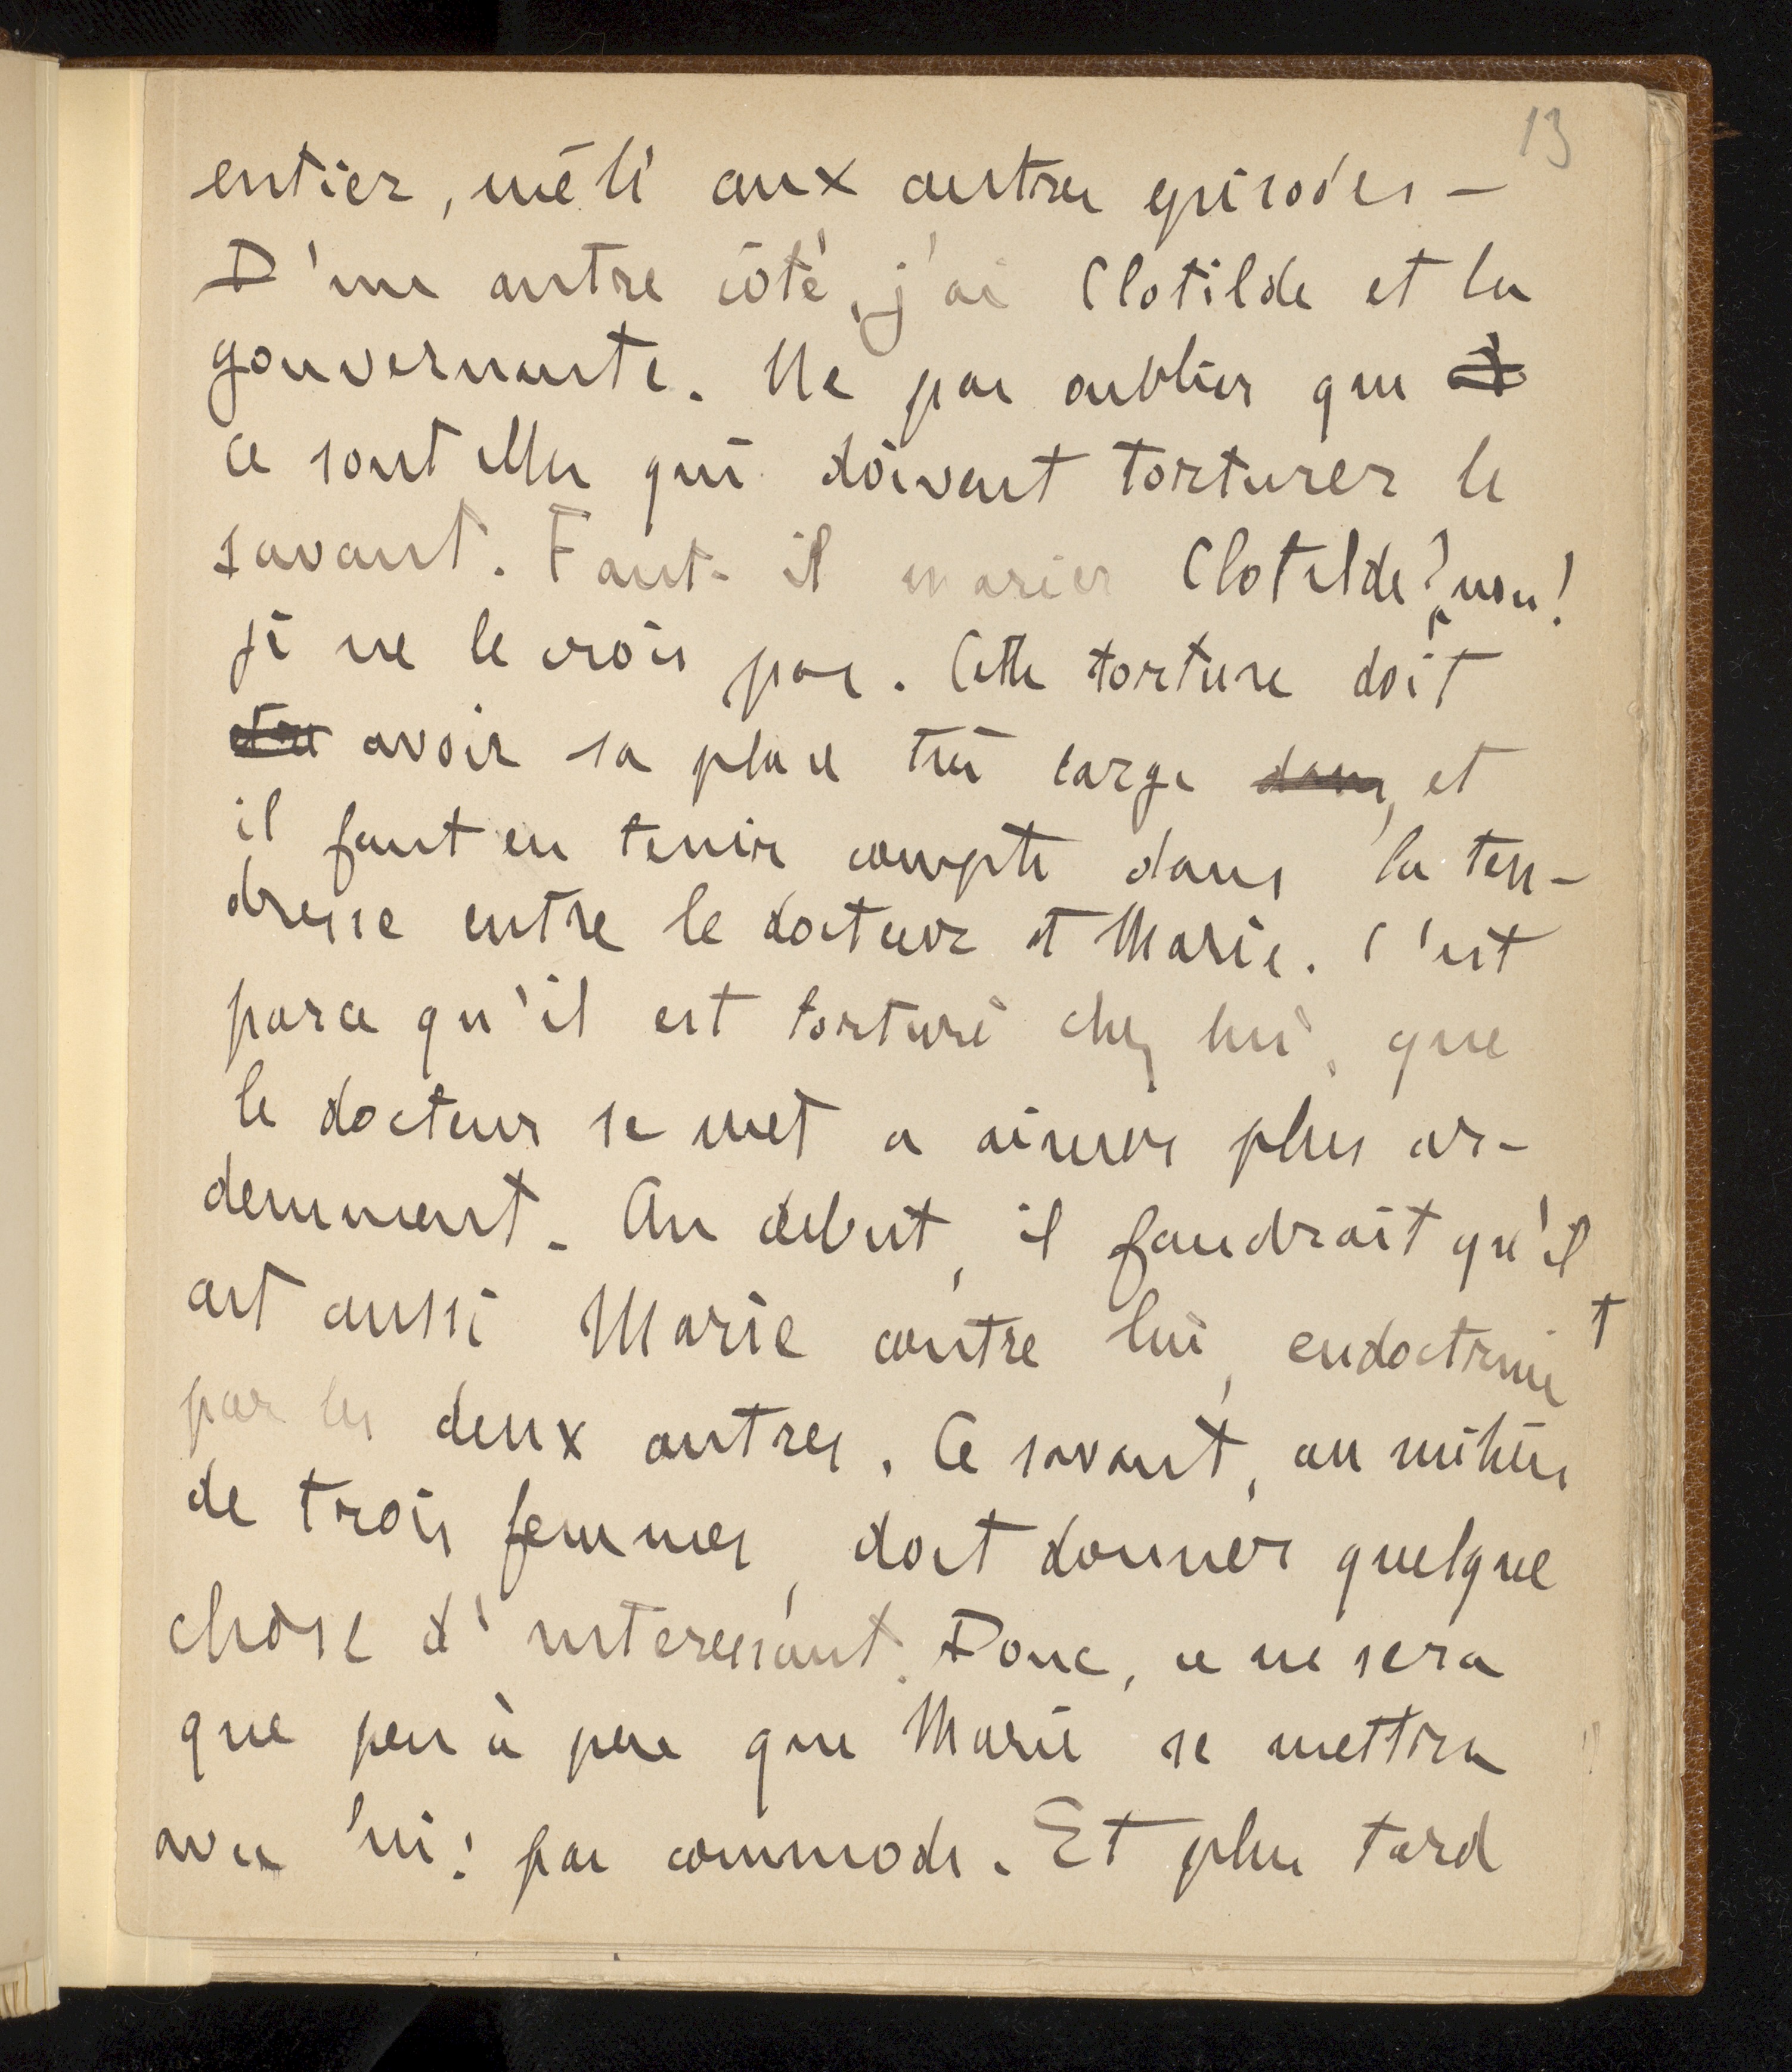 13
entier, mêlé aux autres episodes –
D'un autre côté, j'ai Clotilde et la
gouvernante. Ne pas oublier que
ce sont elles qui doivent torturer le
savant. Faut-il marier Clotilde? non!
je ne le crois pas. Cette torture doit
être avoir sa place très large dans, et
il faut en tenir compte dans la ten-
dresse entre le docteur et Marie. C'est
parce qu'il est torturé chez lui, que
le docteur se met a aimer plus ar-
demment. Au debut, il faudrait qu'il
aît aussi Marie contre lui, endoctriné
par les deux autres. Ce savant, au milieu
de trois femmes, doit donner quelque
chose d'interessant. Donc, ce ne sera
que peu à peu que Marie se mettra
avec lui: pas commode. Et plus tard